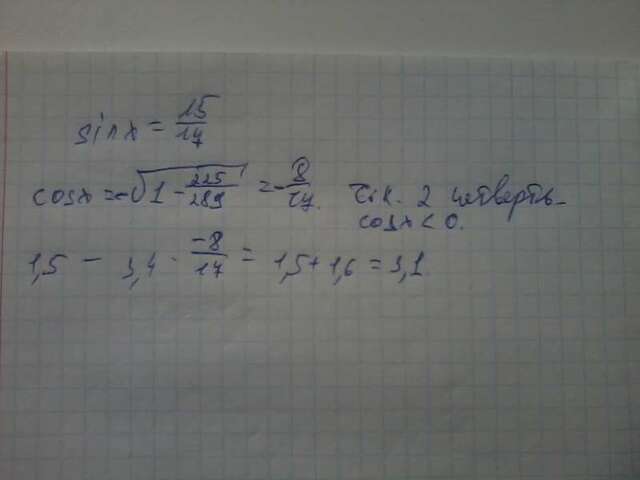 sin x = 15/17
cos x = -√(1 - 225/289) = -8/17. т.к. 2 четверть -
cos x < 0.
1,5 - 3,4 · -8/17 = 1,5 + 1,6 = 3,1